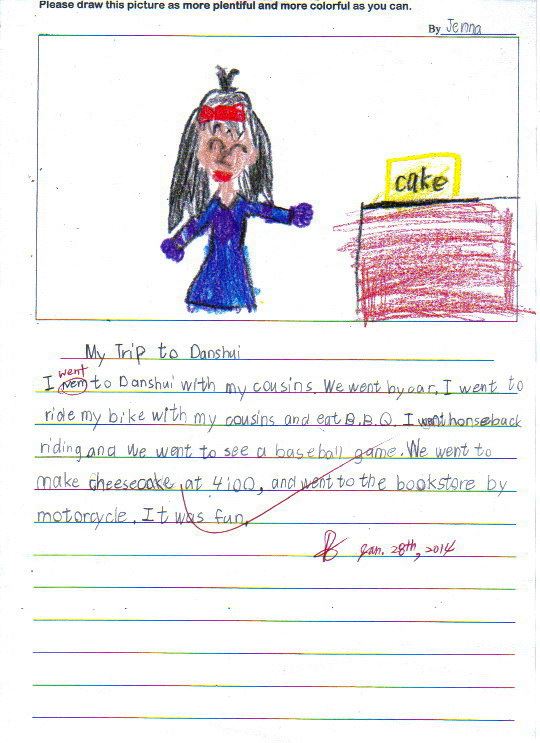 Please draw this picture as more plentiful and more colorful as you can.
By Jenna
cake
My Trip to Danshui
went
I wen to Danshui with my cousins. We went by car. I went to
ride my bike with my cousins and eat B.B.Q. I went horseback
riding and we went to see a baseball game. We went to
make cheesecake at 4:00, and went to the bookstore by
motorcycle. It was fun.
Jan. 28th, 2014